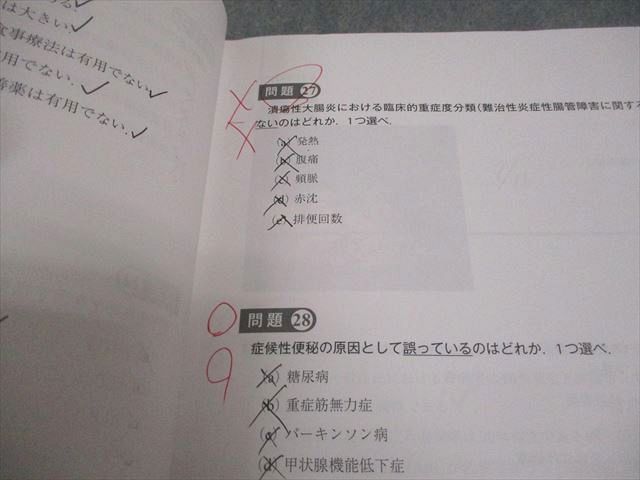 は大きい.
食事療法は有用でない.
用でない.
薬は有用でない.
問題 27
潰瘍性大腸炎における臨床的重症度分類(難治性炎症性腸管障害に関す
ないのはどれか. 1つ選べ.
(a) 発熱
(b) 腹痛
(c) 頻脈
(d) 赤沈
(e) 排便回数
問題 28
症候性便秘の原因として誤っているのはどれか. 1つ選べ.
(a) 糖尿病
(b) 重症筋無力症
(c) パーキンソン病
(d) 甲状腺機能低下症